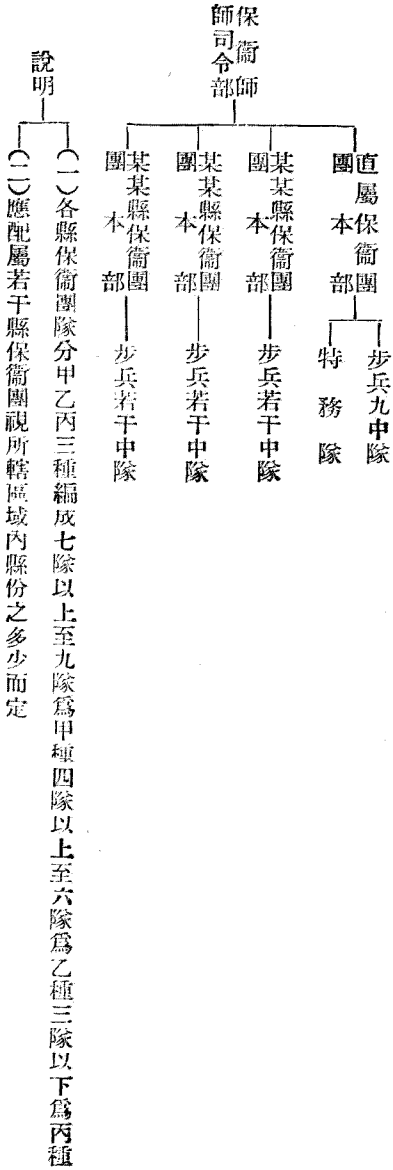 保衞師
師司令部
直屬保衞團
團本部
步兵九中隊
特務隊
某某縣保衞團
團本部
步兵若干中隊
某某縣保衞團
團本部
步兵若干中隊
某某縣保衞團
團本部
步兵若干中隊
說明
（一）各縣保衞團隊分甲乙丙三種編成七隊以上至九隊爲甲種四隊以上至六隊爲乙種三隊以下爲丙種
（二）應配屬若干縣保衞團視所轄區域內縣份之多少而定